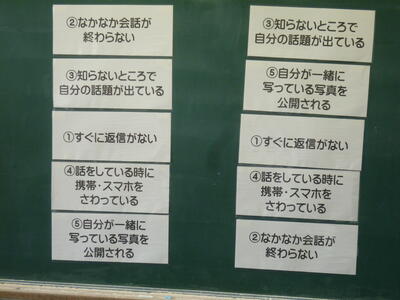 ②なかなか会話が
終わらない
③知らないところで
自分の話題が出ている
①すぐに返信がない
④話をしている時に
携帯・スマホを
さわっている
⑤自分が一緒に
写っている写真を
公開される
③知らないところで
自分の話題が出ている
⑤自分が一緒に
写っている写真を
公開される
①すぐに返信がない
④話をしている時に
携帯・スマホを
さわっている
②なかなか会話が
終わらない